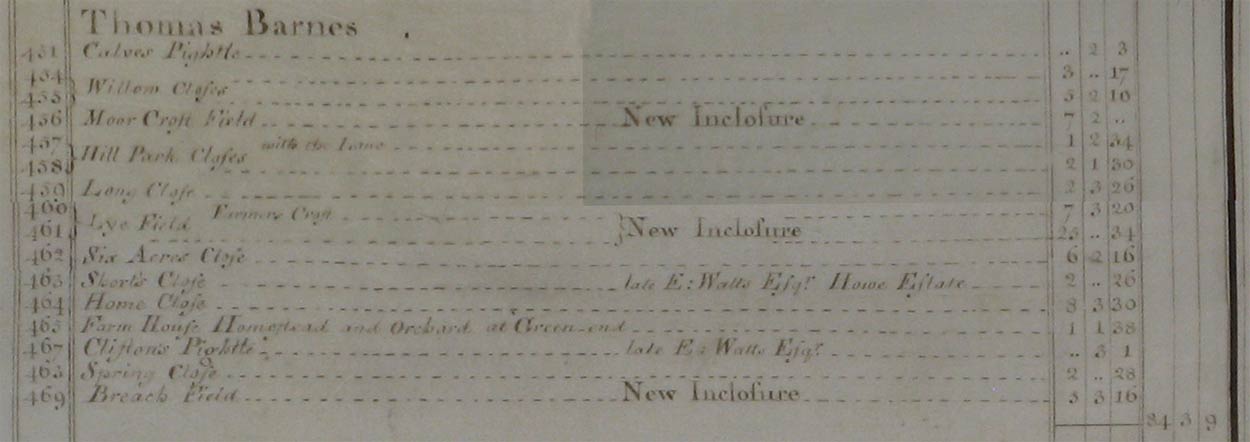 Thomas Barnes
451 Calves Pightle .. 2 3
454 3 .. 17
Willow Closes
455 5 2 10
456 Moor Croft Field New Inclosure 7 2 ..
457 with the Lane 1 2 34
Hill Park Closes
458 2 1 30
459 Long Close 2 3 26
460 Farmers Croft 7 3 20
Lye Field } New Inclosure
461 25 .. 34
462 Six Acres Close 6 2 16
463 Short's Close late E: Watts Esqr. Howe Estate 2 .. 26
464 Home Close 8 3 30
465 Farm House Homestead and Orchard at Green-end 1 1 38
467 Clifton's Pightle late E: Watts Esqr. .. 3 1
468 Spring Close 2 .. 28
469 Breach Field New Inclosure 5 3 16
84 3 9